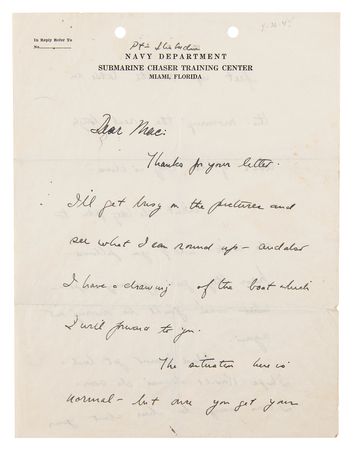 In Reply Refer To
No.
NAVY DEPARTMENT
SUBMARINE CHASER TRAINING CENTER
MIAMI, FLORIDA
Dear Mac:
Thanks for your letter.
I'll get busy on the pictures and
see what I can round up - and also
I have a drawing of the boat which
I will forward to you.
The situation here is
normal - but once you get your